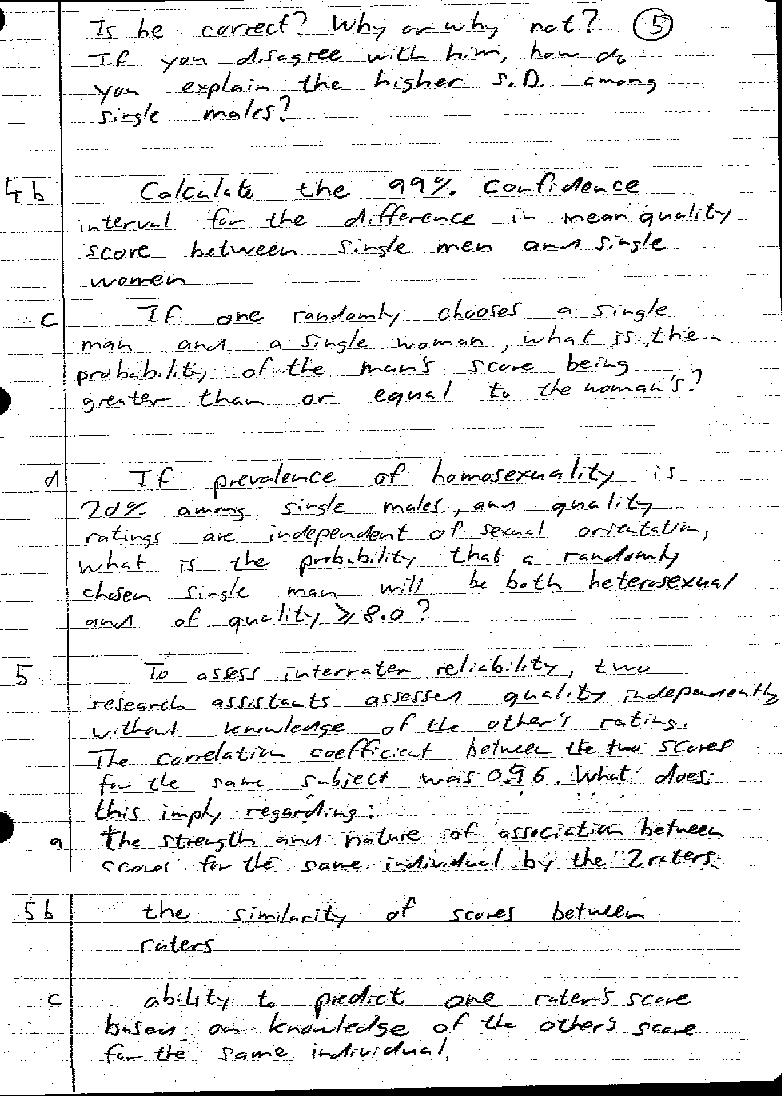 Is he correct? Why or why not? 5
If you disagree with him, how do
you explain the higher S.D. among
single males?
4b Calculate the 99% confidence
interval for the difference in mean quality
score between single men and single
women
c If one randomly chooses a single
man and a single woman, what is the
probability of the man's score being
greater than or equal to the woman's?
d If prevalence of homosexuality is
20% among single males, and quality
ratings are independent of sexual orientation,
what is the probability that a randomly
chosen single man will be both heterosexual
and of quality ≥ 8.0?
5 To assess interrater reliability, two
research assistants assessed quality independently
without knowledge of the other's rating.
The correlation coefficient between the two scores
for the same subject was 0.96. What does
this imply regarding:
a the strength and nature of association between
scores for the same individual by the 2 raters
5b the similarity of scores between
raters
c ability to predict one rater's score
based on knowledge of the other's score
for the same individual.